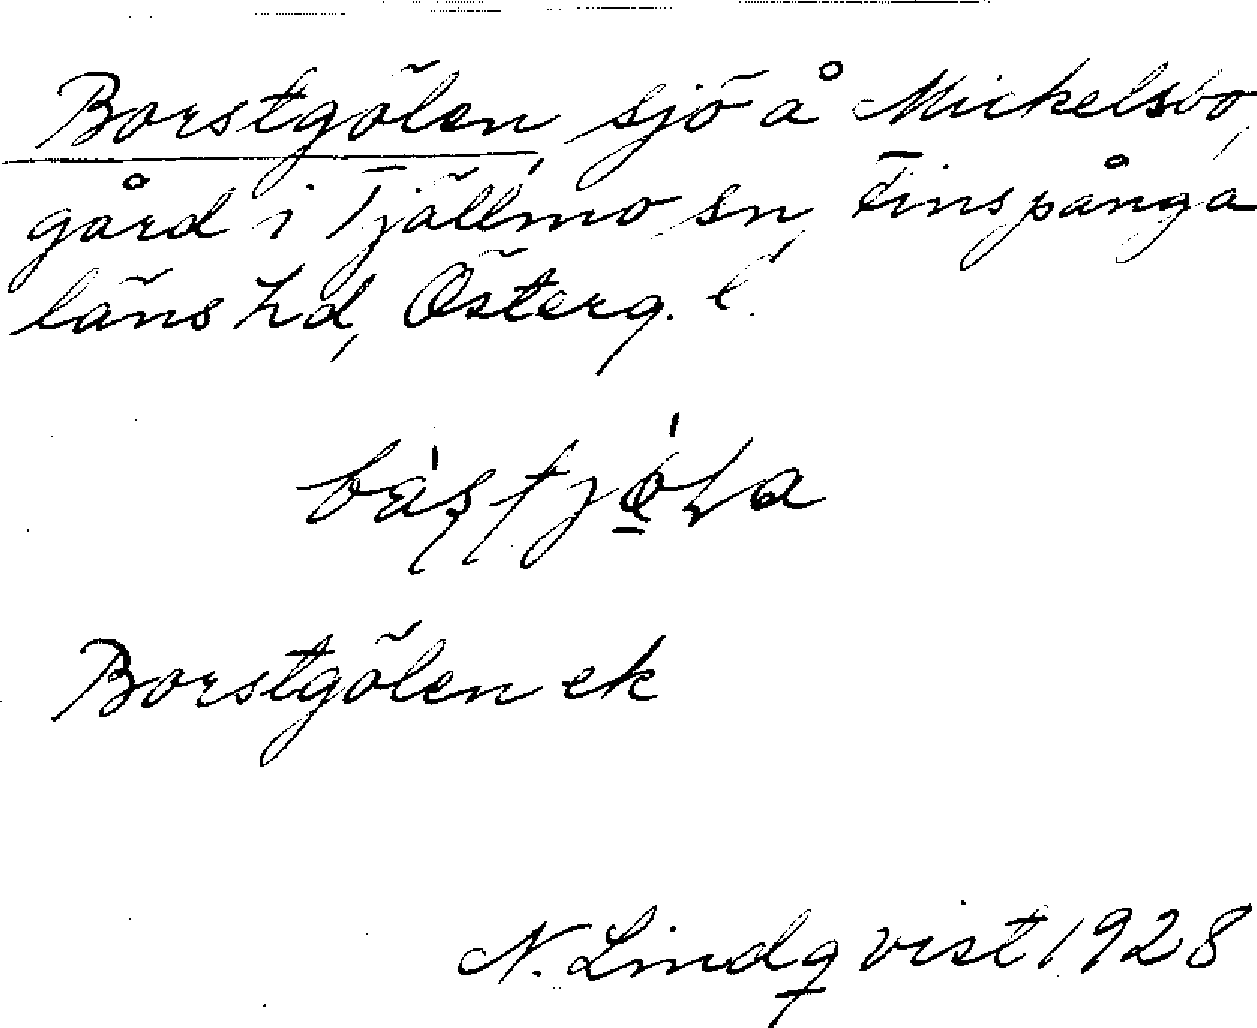 Borstgölen, sjö å Mickelsbo,
gård i Tjällmo sn, Finspånga
läns hd, Österg. l.
Borstgölen ek
N. Lindqvist 1928